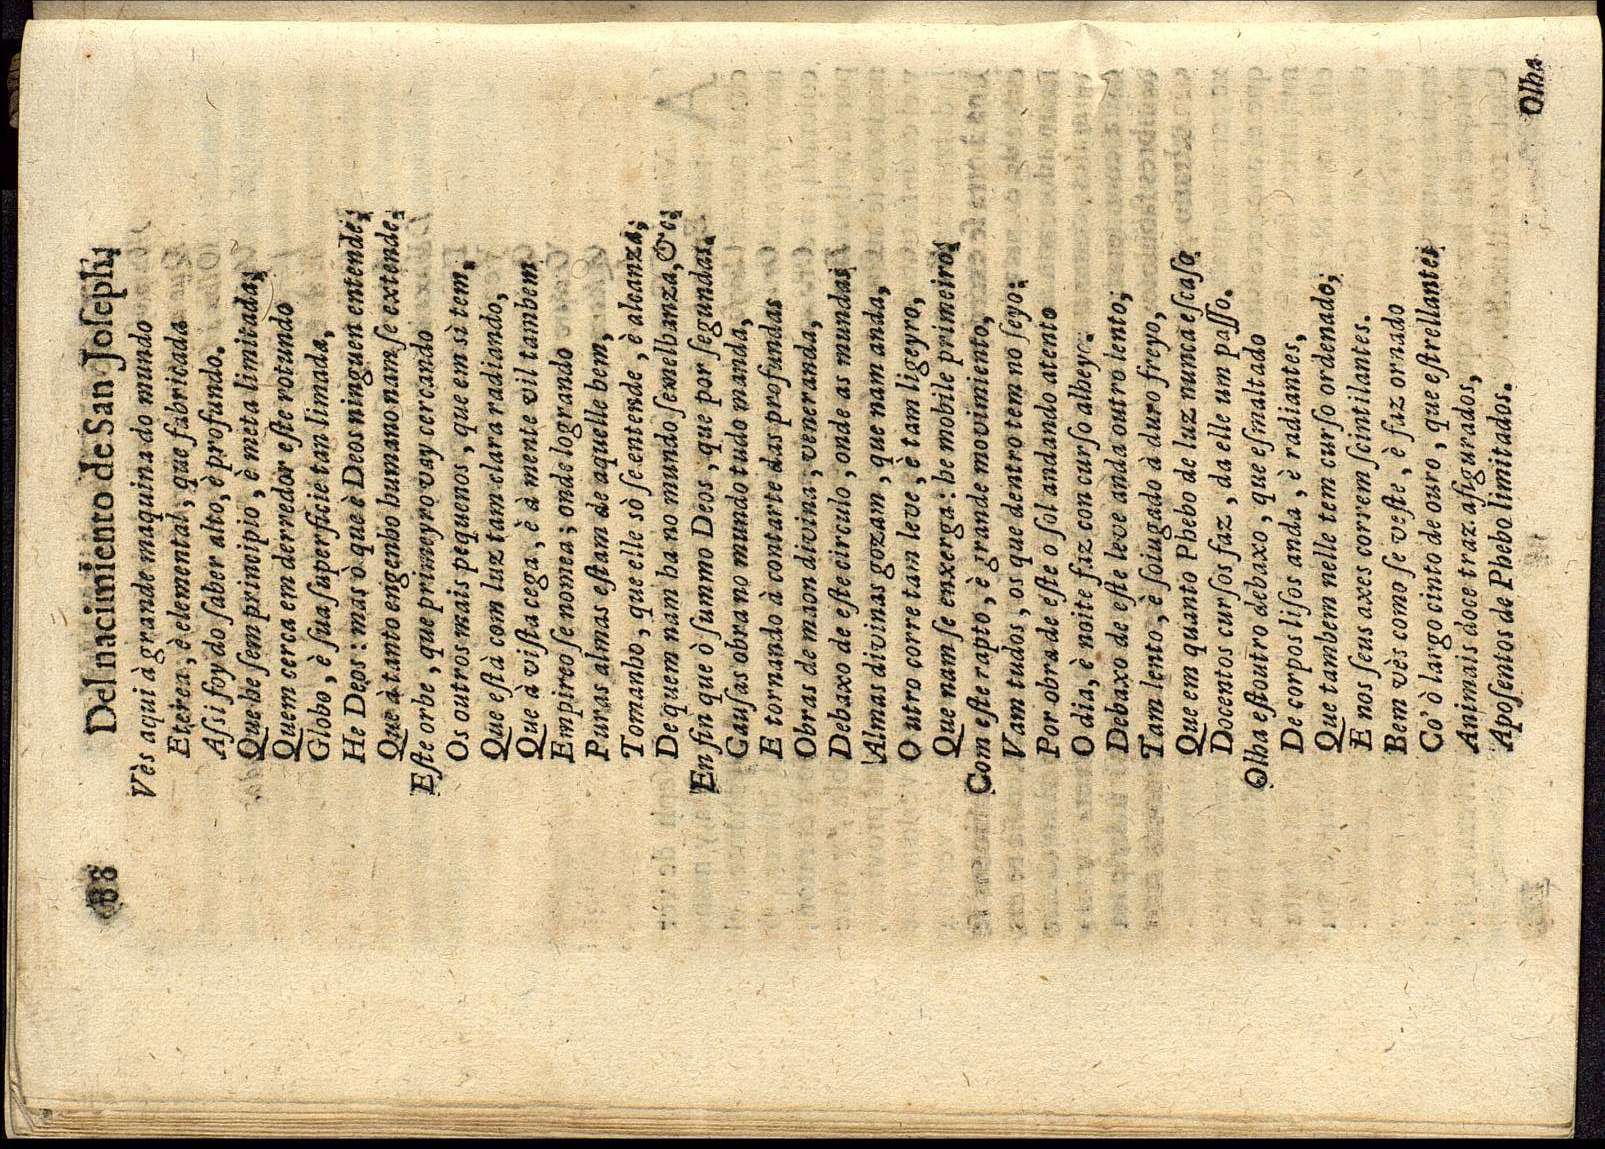 88
Del nacimiento de San Joſeph;
Vès aqui à grande maquina do mundo
Eterea, è elemental, que fabricada
Aſsi foy do ſaber alto, è profundo.
Que he ſem principio, è meta limitada;
Quem cerca em derredor eſte rotundo
Globo, è ſua ſuperficie tam limada,
He Deos: mas ò que è Deos ninguen entende;
Que à tanto engenho humano nam ſe extende.
Eſte orbe, que primeyro vay cercando
Os outros mais pequenos, que em sì tem,
Que eſtà com luz tam clara radiando,
Que à viſta cega, è à mente vil tambem
Empireo ſe nomea; onde logrando
Puras almas eſtam de aquelle bem,
Tomanho, que elle sò ſe entende, è alcanza;
De quem nam ha no mundo ſemelhanza, &c;
En fin que ò ſummo Deos, que por ſegundas.
Cauſas obra no mundo tudo manda,
E tornando à contarte das profundas
Obras de maon divina, veneranda,
Debaxo de eſte circulo, onde as mundas
Almas divinas gozam, que nam anda,
Outro corre tam leve, è tam ligeyro,
Que nam ſe enxerga: he mobile primeiro,
Com eſte rapto, è grande movimiento,
Vam tudos, os que dentro tem no ſeyo:
Por obra de eſte o ſol andando atento
O dia, è noite fiz con curſo alheyo.
Debaxo de eſte leve anda outro lento;
Tam lento, è ſoiugado à duro freyo,
Que em quanto Phebo de luz nunca eſcaſo
Docentos curſos faz, da elle um paſſo.
Olha eſtoutro debaxo, que eſmaltado
De corpos liſos anda, è radiantes,
Que tambem nelle tem curſo ordenado;
E nos ſeus axes correm ſcintilantes.
Bem vès como ſe veſte, è faz ornado
Co' ò largo cinto de ouro, que eſtrellantes
Animais doce traz afigurados,
Apoſentos de Phebo limitados.
Olha